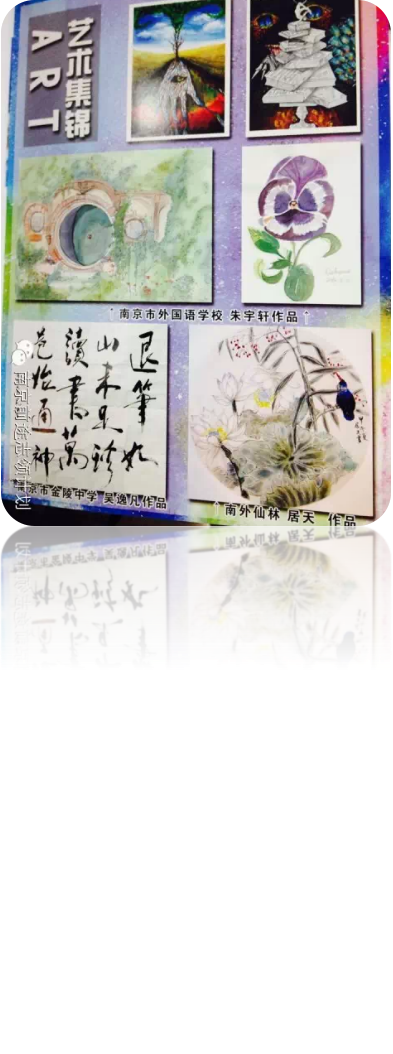 艺术集锦
ART
南京市外国语学校 朱宇轩作品
退筆如
山未足珍
讀書萬
卷始通神
京市金陵中学 吴逸凡作品
南外仙林 居天 作品
南京
计划